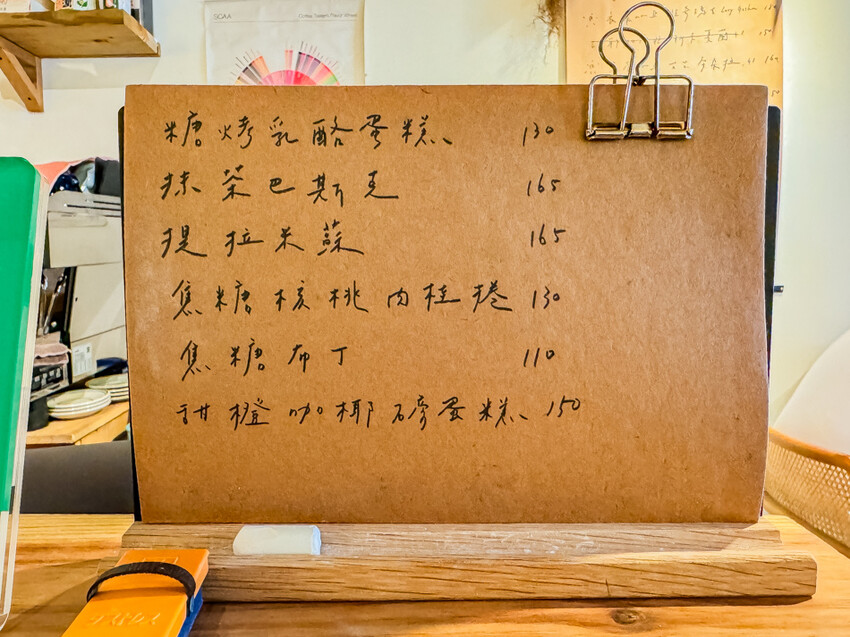 SCAA
糖烤乳酪蛋糕、 130
抹茶巴斯克 165
提拉米蘇 165
焦糖核桃肉桂捲 130
焦糖布丁 110
甜橙咖椰磅蛋糕、 150